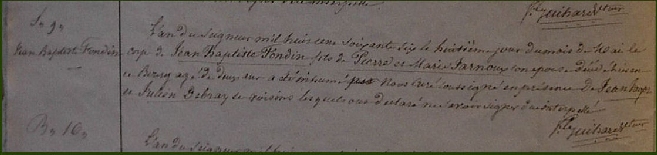 fte Guihard rteur
S. 9.
Jean Baptiste Fondin
L'an du Seigneur mil huit cent soixante six le huitième jour du mois de Mai le
corps de Jean Baptiste Fondin fils de Pierre et Marie Farnoux son épouse décédé hier
en Bourg agé de deux ans a été inhumé Nous Curé soussigné en présence de Jean
et Julien Debray ses voisins lesquels ont déclaré ne savoir signer de ce interpellé
fte Guihard rteur
B. 10.
L'an du Seigneur mil